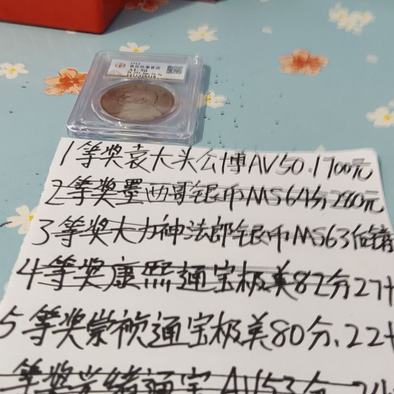 1等奖袁大头公博AV50.1700元
2等奖墨西哥银币MS64分280元
3等奖大力神法郎银币MS63后铸
4等奖康熙通宝极美82分27
5等奖崇祯通宝极美80分.22
等奖光绪通宝AV53分